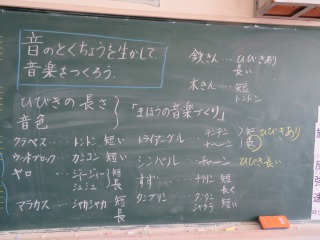 音のとくちょうを生かして
音楽をつくろう。
鉄きん…ひびきあり
長い
木きん…短
トントン
ひびきの長さ
音色
「まほうの音楽づくり」
クラベス…トントン 短い
ウッドブロック…カンコン 短い
ギロ…ジージィー 長
ジュジュ 短
マラカス…シャカシャカ 短
長
トライアングル…チンチン 短
チーン 長 ひびきあり
シンバル…チャーン ひびき長い
すず…チリン 短
長く
タンブリン…タンタン
シャララ 短い